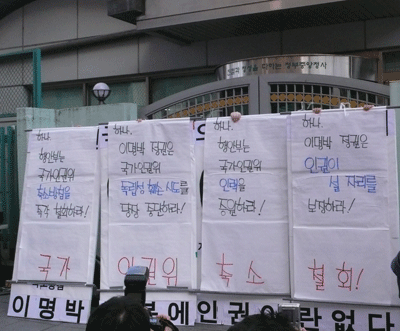 하나.
행안부는
국가인권위
축소방침을
즉각 철회하라!
국가
하나.
이명박 정권은
국가인권위
독립성 훼손 시도를
당장 중단하라!
인권위
하나.
행안부는
국가인권위
인력을
증원하라!
축소
하나.
이명박 정권은
인권이
설 자리를
보장하라!
철회!
이명박
에 인권
없다